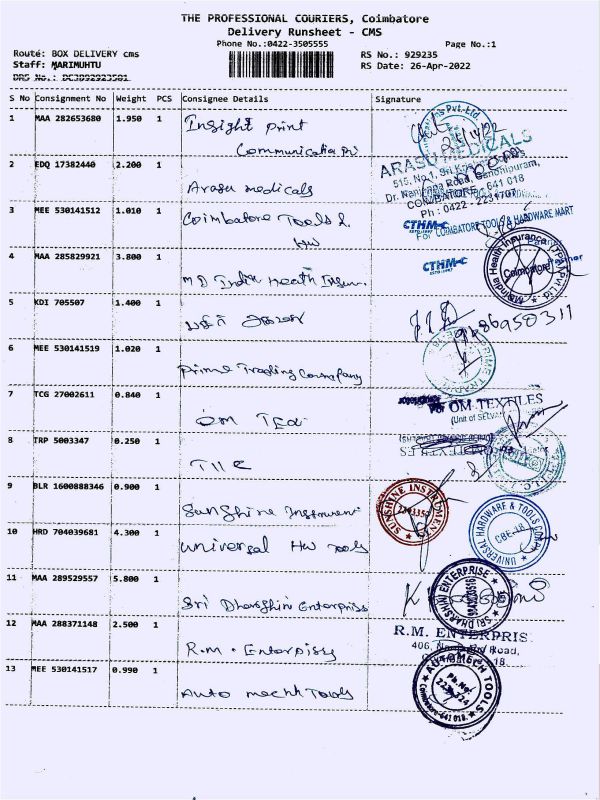 THE PROFESSIONAL COURIERS, Coimbatore
Delivery Runsheet - CMS
Phone No.:0422-3505555
Page No.:1
Route: BOX DELIVERY cms
RS No.: 929235
Staff: MARIMUHTU
RS Date: 26-Apr-2022
DRS No.: DC3D92923501
S No Consignment No Weight PCS Consignee Details Signature
1 MAA 282653680 1.950 1 Insight print
Communicatin
2 EDQ 17382440 2.200 1 Arasu medicals
ARASU MEDICALS
COIMBATORE - 641 018
Ph : 0422 - 2231707
3 MEE 530141512 1.010 1 Coimbatore Tools &
HW
CTHM-C
For COIMBATORE TOOLS & HARDWARE MART
4 MAA 285829921 3.800 1 MD India Health Insur.
CTHM-C
MDIndia Health Insurance TPA Pvt Ltd
Coimbatore
5 KDI 705507 1.400 1
9486950311
6 MEE 530141519 1.020 1 Prime Trading Company
PRIME TRADING
7 TCG 27002611 0.840 1 OM Tex
For OM TEXTILES
8 TRP 5003347 0.250 1
9 BLR 1600888346 0.900 1 Sunshine Instrument
SUNSHINE INSTRUMENTS
10 HRD 704039681 4.300 1 universal HW Tools
UNIVERSAL HARDWARE & TOOLS CORP
CBE-18
11 MAA 289529557 5.800 1 Sri Dharshini Enterpriss
SRI DHARSHINI ENTERPRISE
12 MAA 288371148 2.500 1 R.M. Enterpisg
R.M. ENTERPRIS
13 MEE 530141517 0.990 1 Auto mecht Tools
AUTOMECH TOOLS
Coimbatore-641 018.